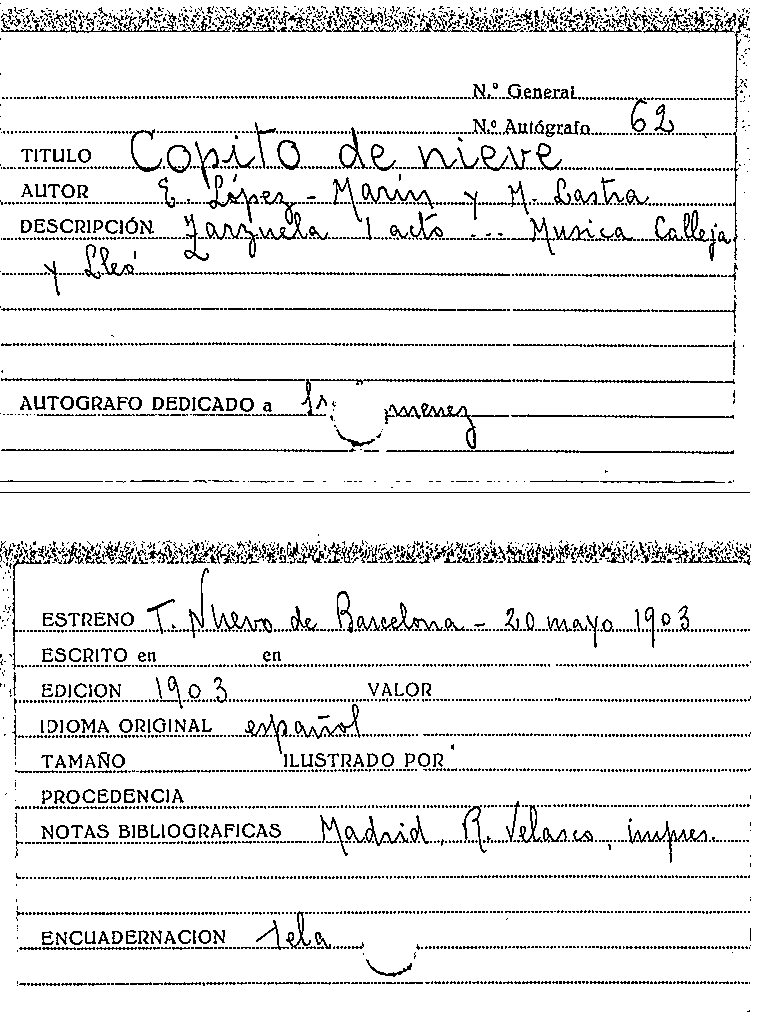 N.º General
N.º Autógrafo 62
TITULO Copito de nieve
AUTOR E. López-Marín y M. Lastra
DESCRIPCIÓN Zarzuela 1 acto ... Musica Calleja
y Lleó
AUTOGRAFO DEDICADO a
ESTRENO T. Nuevo de Barcelona - 20 mayo 1903
ESCRITO en en
EDICION 1903 VALOR
IDIOMA ORIGINAL español
TAMAÑO ILUSTRADO POR
PROCEDENCIA
NOTAS BIBLIOGRAFICAS Madrid, R. Velasco, impres.
ENCUADERNACION tela